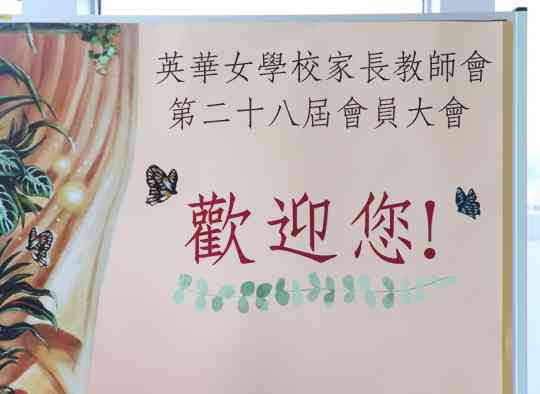 英華女學校家長教師會
第二十八屆會員大會
歡迎您!